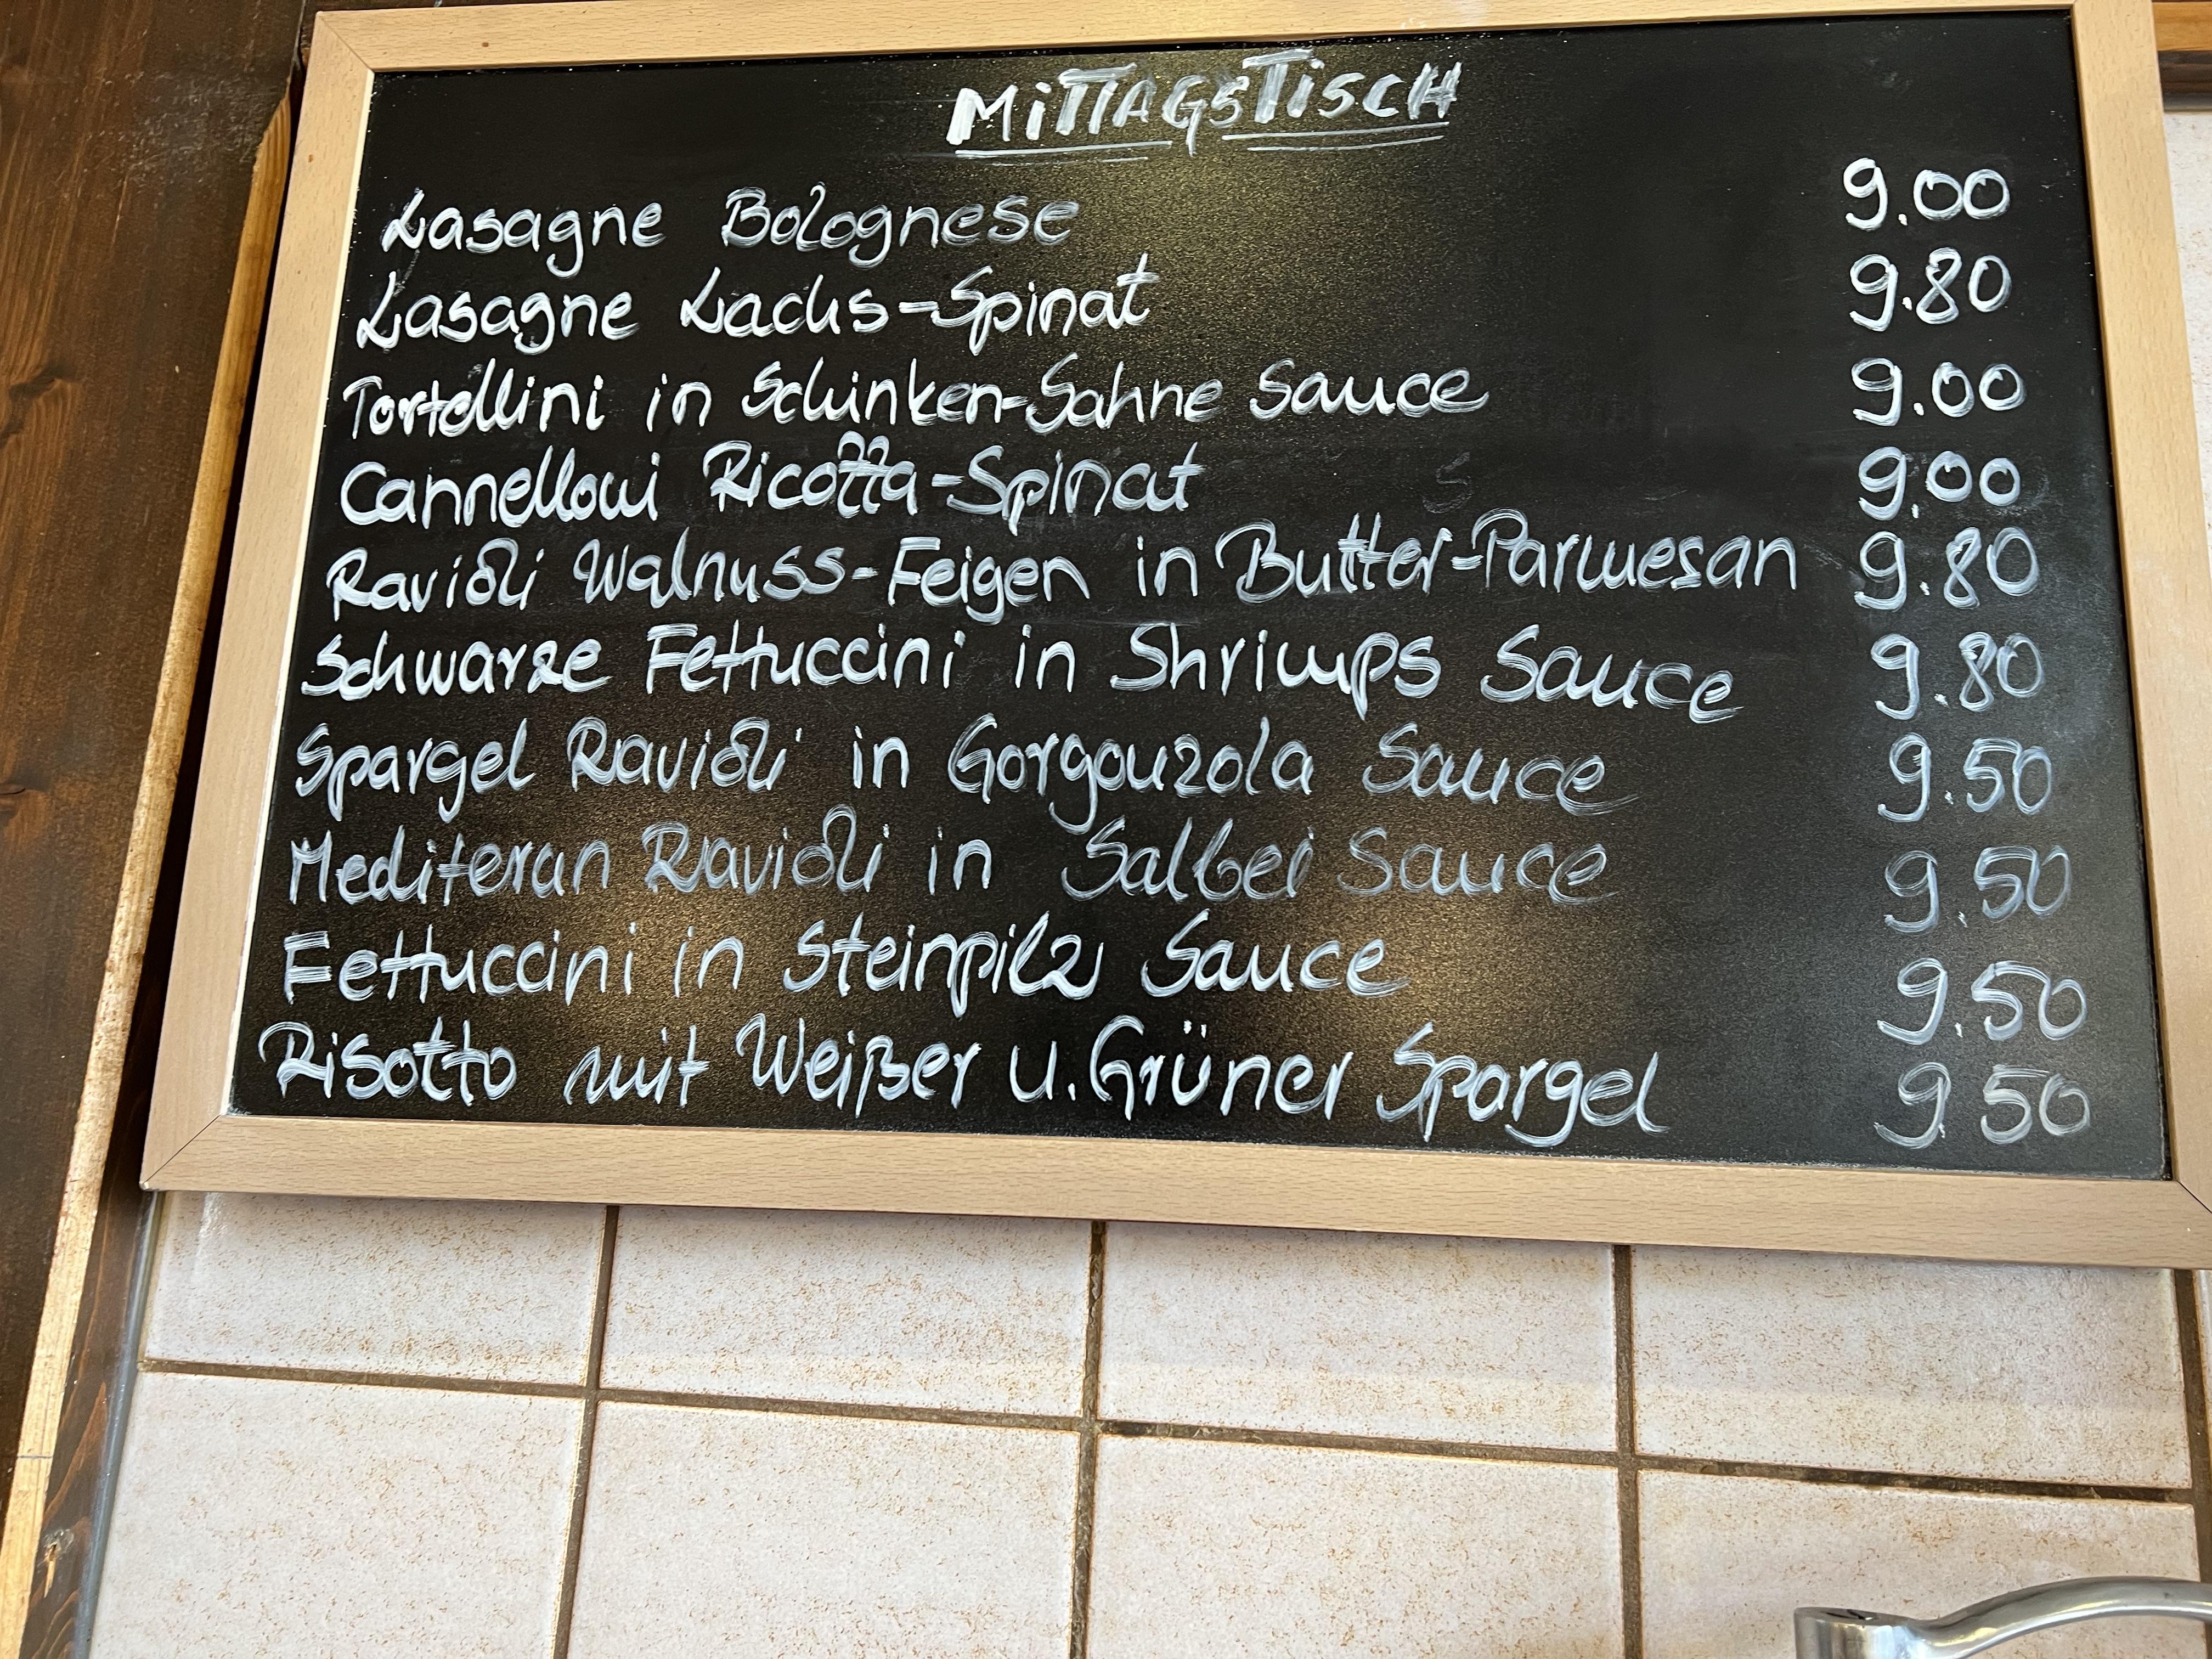 MITTAGSTISCH
Lasagne Bolognese 9.00
Lasagne Lachs-Spinat 9.80
Tortellini in Schinken-Sahne Sauce 9.00
Cannelloni Ricotta-Spinat 9.00
Ravioli Walnuss-Feigen in Butter-Parmesan 9.80
Schwarze Fettuccini in Shrimps Sauce 9.80
Spargel Ravioli in Gorgonzola Sauce 9.50
Mediteran Ravioli in Salbei Sauce 9.50
Fettuccini in Steinpilz Sauce 9.50
Risotto mit Weißer u. Grüner Spargel 9.50